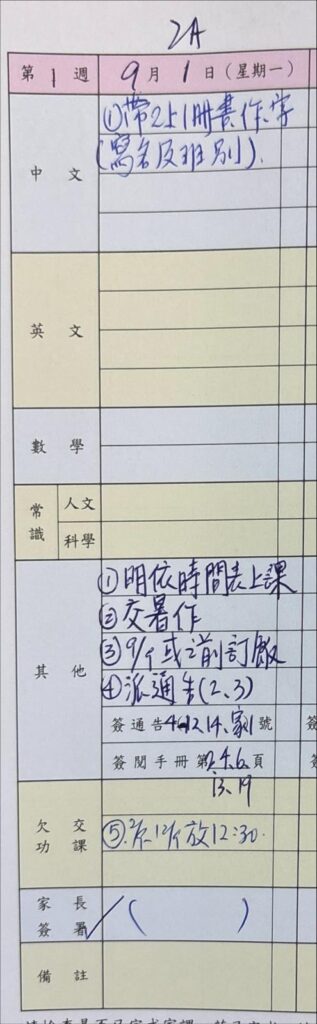 2A
第 1 週 9 月 1 日 (星期一)
中 文
①帶2上1冊書、作、字
(寫名及班別).
英 文
數 學
常識
人文
科學
其 他
①明依時間表上課
②交暑作
③9/1或之前訂飯
④派通告(2、3)
簽通告4.12.14.家1號
簽閱手冊第2.4.6.頁
13.19
欠 交
功 課
⑤
放12:30.
家 長
簽 署
✓( )
備 註